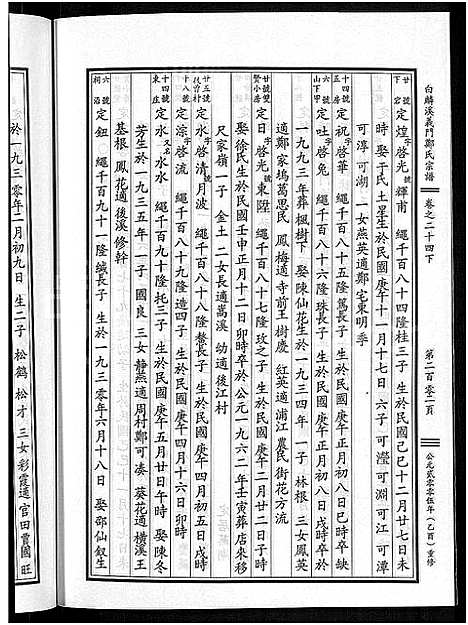 白麟溪義門鄭氏宗譜
卷之二十四下
第二百零一頁
公元贰零零伍年(乙酉)重修
廿號 宕下 定煌 字啓光 號輝甫 繩千百八十四隆桂三子 生於民國己巳十二月廿七日未
時 娶于氏土星生於民國庚午十一月十七日 六子 可瀅 可淵 可江 可潭
可淳 可湖 一女燕英適鄭宅東明季
十四號 五房 定祝 字啓華 繩千百八十五隆篤長子 生於民國庚午正月初八日巳時卒缺
六號 山下甲 定吐 字啓兔 繩千百八十六隆珠長子 生於民國庚午正月初八日 卒於公元
一九九三年葬楓樹下 娶陳仙花生於一九三四年 一子 林根 三女鳳英
適鄭家塢萬思民 鳳梅適寺前王樹慶 紅英適浦江農民街花方流
廿號 賢小房 定日 字啓光 號東陞 繩千百八十七隆玫之子 生於民國庚午二月廿二日子時
娶徐民生於民國壬申正月十二日卯時卒於公元一九六二年壬寅葬店來移
尺家嶺 一子 金土 二女長適蒿溪 幼適後江村
廿五號 後曹村 定水 字啓清 號月波 繩千百八十八隆鰲長子 生於民國庚午四月初五日戌時
十八號 定淙 字啓流 繩千百八十九隆造四子 生於民國庚午四月十六日卯時
十四號 東庄 定水 字水水 繩千百九十隆托三子 生於民國庚午五月初四日戌時 娶陳冬
芳生於一九三五年 一子 國良 三女靜燕適周村鄭可湊 葵花適橫溪王
基根 鳳花適後溪修幹
六號 祠沿 定鈕 繩千百九十一隆緘長子 生於一九三零年六月十八日 娶邵仙釵生
於一九三零年一月初九日 生二子 松鶴 松才 三女彩霞適官田賈國旺